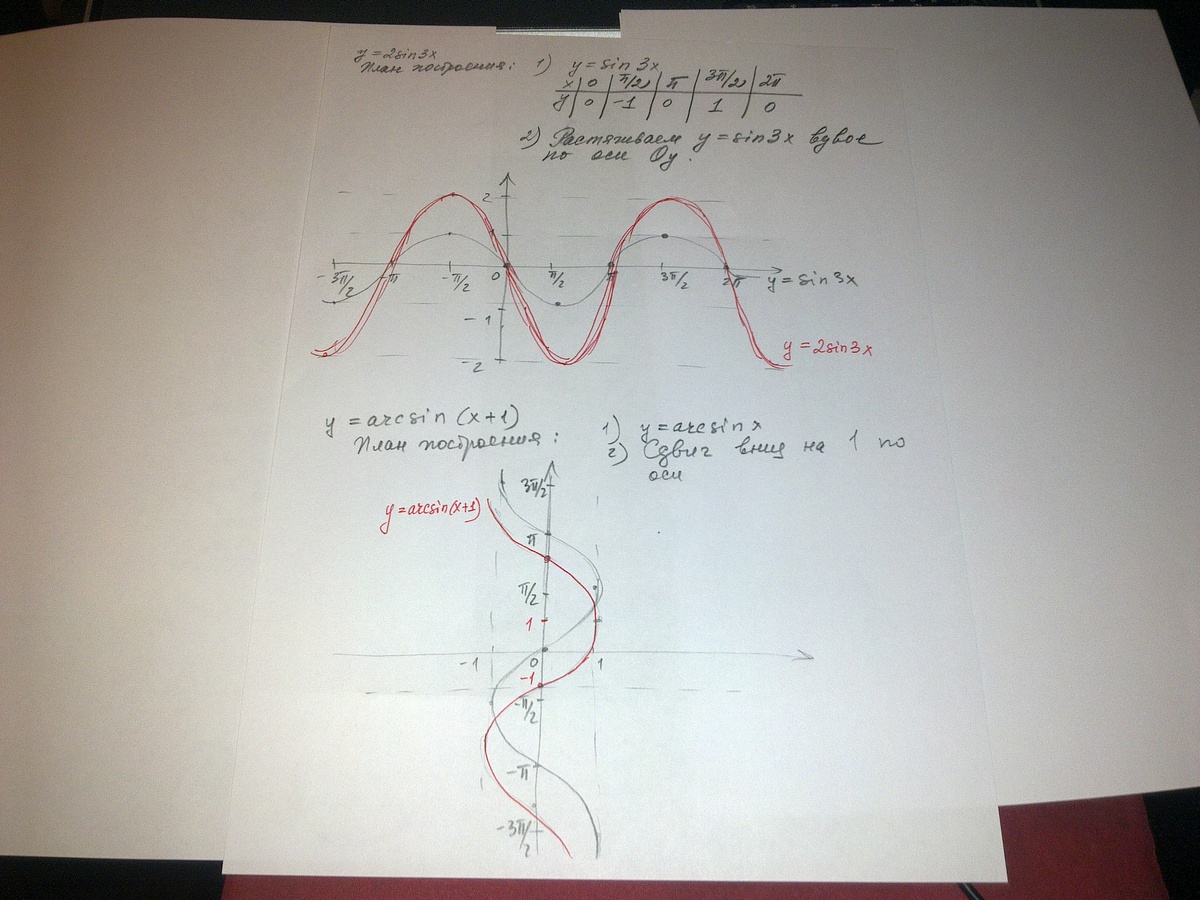 y = 2sin3x
План построения: 1) y = sin 3x
x 0 π/2 π 3π/2 2π
y 0 -1 0 1 0
2) Растягиваем y = sin3x вдвое
по оси Oy.
2
1
-3π/2 -π -π/2 0 π/2 π 3π/2 2π y = sin 3x
-1
y = 2sin3x
-2
y = arcsin (x+1) 1) y = arcsin x
План построения: 2) Сдвиг вниз на 1 по
оси
3π/2
y = arcsin(x+1)
π
π/2
1
-1 0 1
-1
-π/2
-π
-3π/2